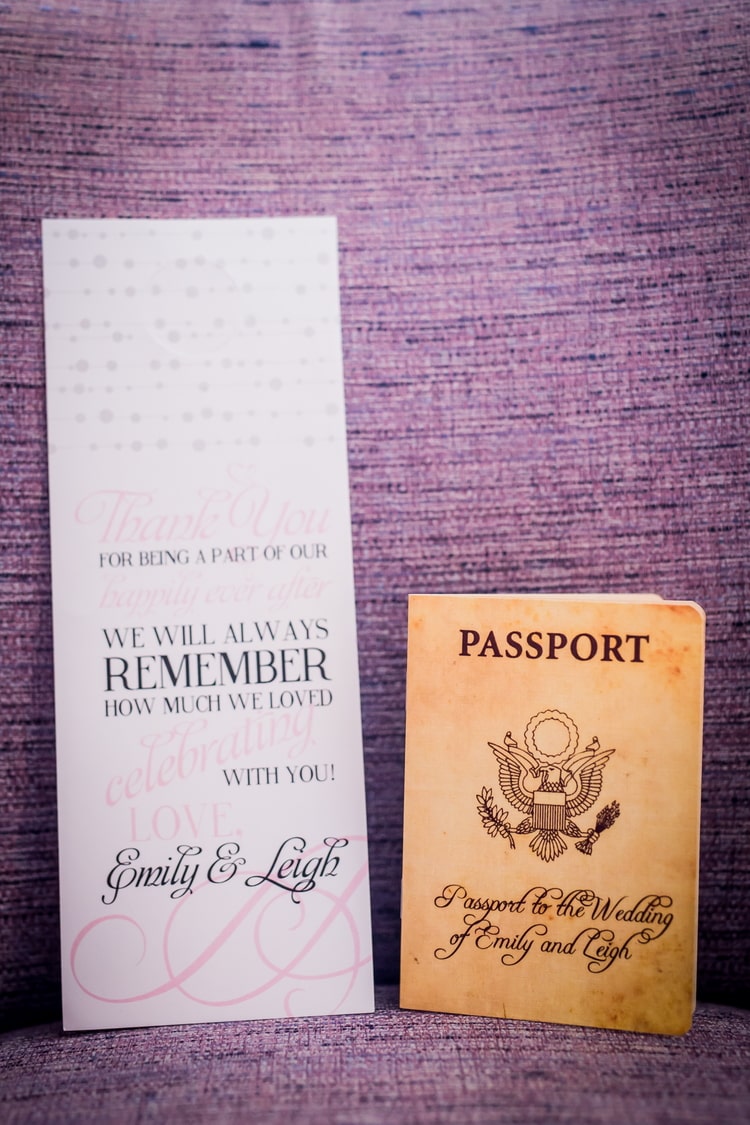 Thank You
FOR BEING A PART OF OUR
happily ever after
WE WILL ALWAYS
REMEMBER
HOW MUCH WE LOVED
celebrating
WITH YOU!
LOVE,
Emily & Leigh
PASSPORT
Passport to the Wedding
of Emily and Leigh